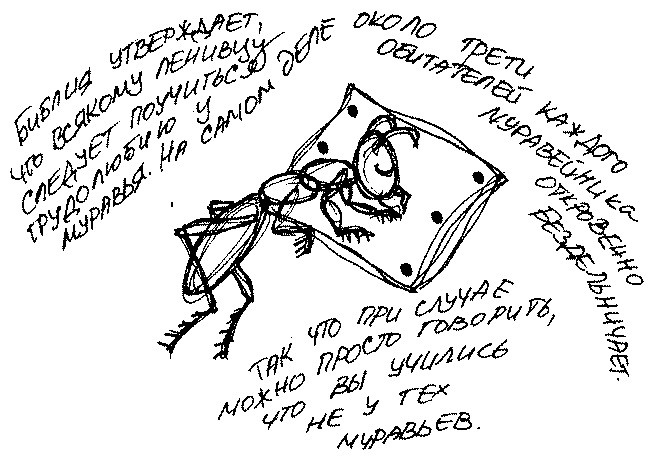 БИБЛИЯ УТВЕРЖДАЕТ,
ЧТО ВСЯКОМУ ЛЕНИВЦУ
СЛЕДУЕТ ПОУЧИТЬСЯ
ТРУДОЛЮБИЮ У
МУРАВЬЯ. НА САМОМ ДЕЛЕ ОКОЛО ТРЕТИ
ОБИТАТЕЛЕЙ КАЖДОГО
МУРАВЕЙНИКА
ОТКРОВЕННО
БЕЗДЕЛЬНИЧАЕТ.
ТАК ЧТО ПРИ СЛУЧАЕ
МОЖНО ПРОСТО ГОВОРИТЬ,
ЧТО ВЫ УЧИЛИСЬ
НЕ У ТЕХ
МУРАВЬЕВ.